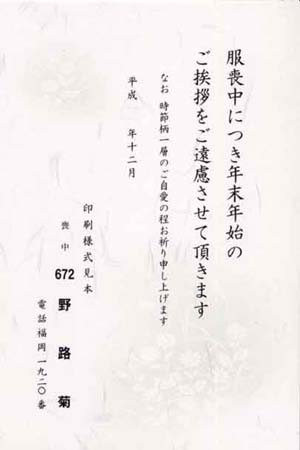 服喪中につき年末年始の
ご挨拶をご遠慮させて頂きます
なお 時節柄一層のご自愛の程お祈り申し上げます
平成　年十二月
印刷様式見本
喪中
672 野路菊
電話福岡一九二〇番